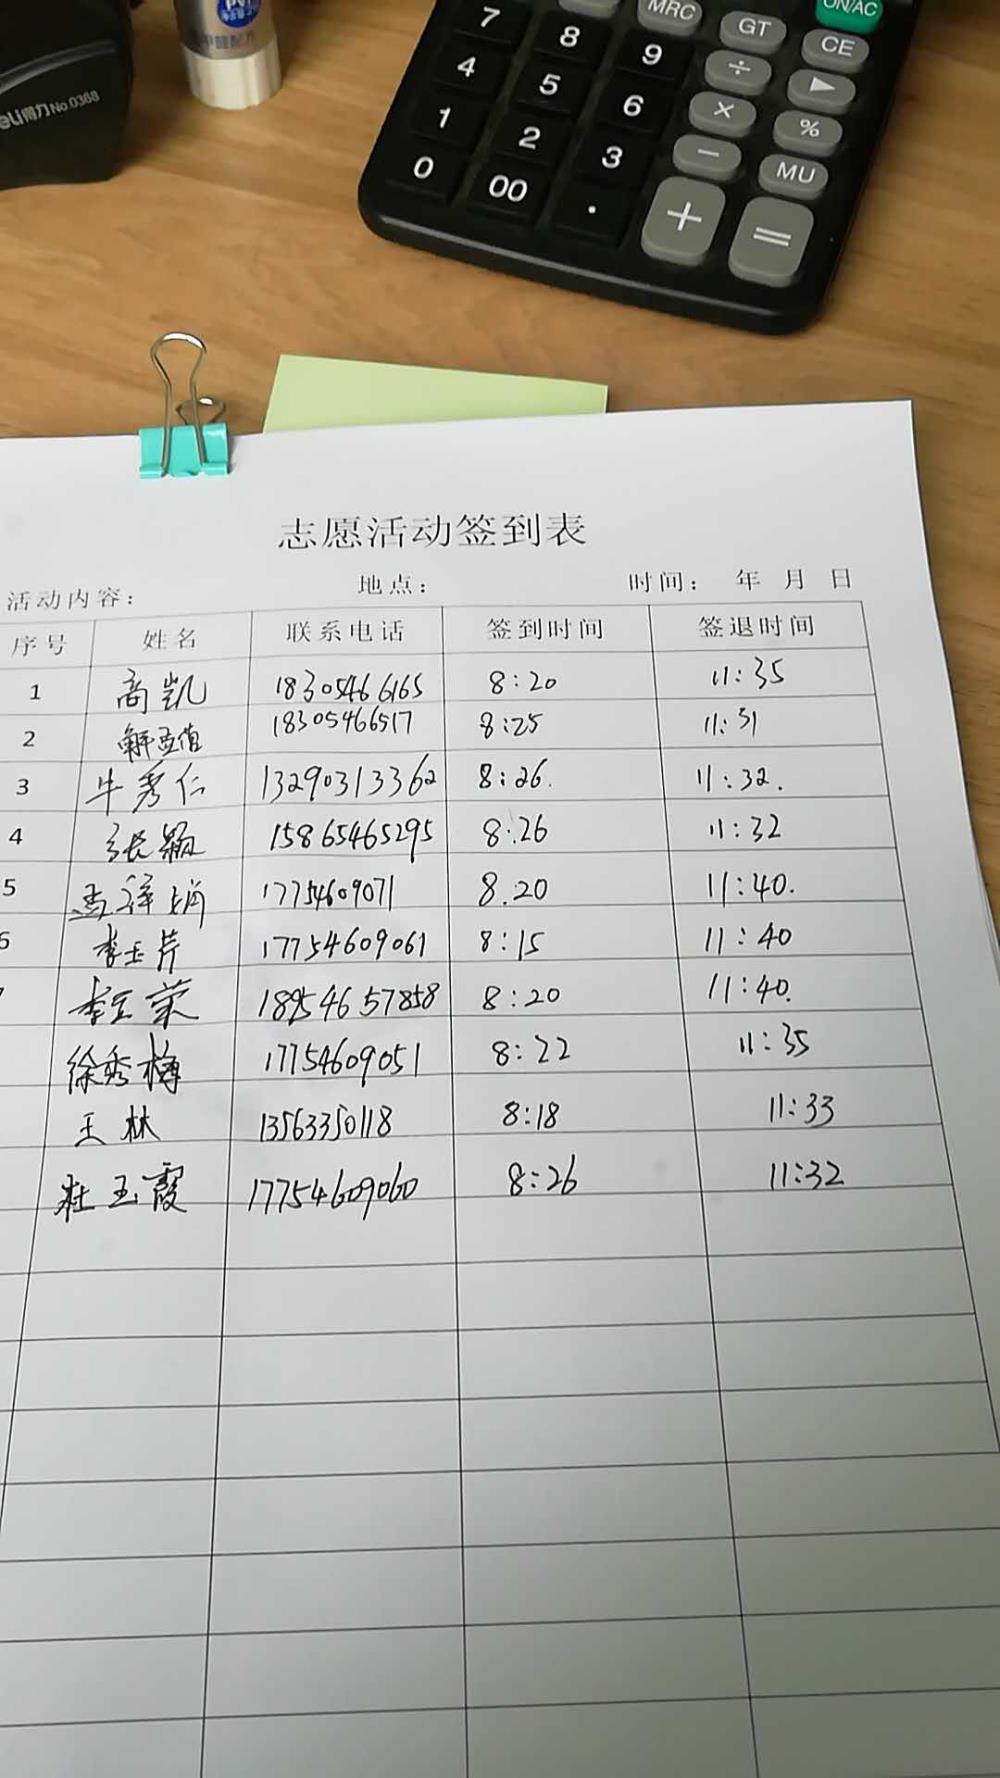 MRC GT ON/AC
7 8 9 ÷ CE
4 5 6 × ▶
1 2 3 − %
0 00 . + = MU
deli得力 No.0368
志愿活动签到表
活动内容： 地点： 时间： 年 月 日
序号 姓名 联系电话 签到时间 签退时间
1 高凯 18305466165 8:20 11:35
2 18305466517 8:25 11:31
3 牛秀仁 13290313362 8:26. 11:32.
4 张颖 15865465295 8:26 11:32
5 17754609071 8.20 11:40.
6 李玉芹 17754609061 8:15 11:40
李玉荣 18954657858 8:20 11:40.
徐秀梅 17754609051 8:22 11:35
王林 13563350118 8:18 11:33
庄玉霞 17754609060 8:26 11:32